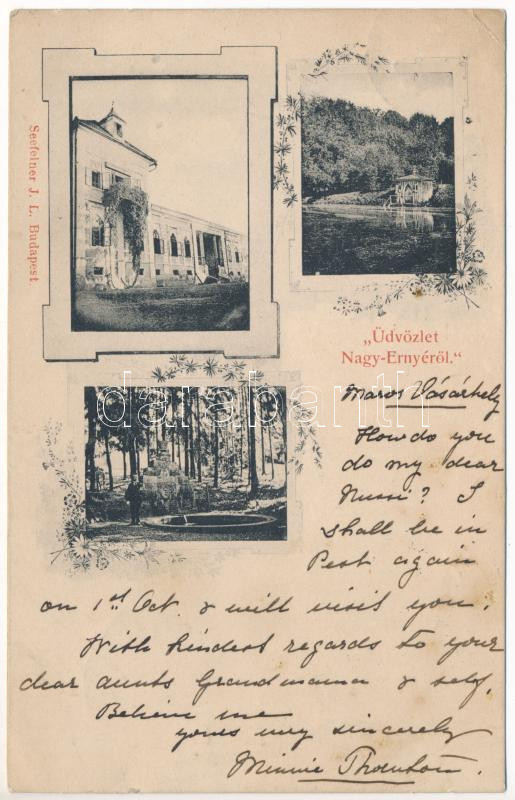 Seefelner J. L. Budapest
„Üdvözlet
Nagy-Ernyéről."
darabanth
Maros Vásárhely
How do you
do my dear
Nussi? I
shall be in
Pest again
on 1st Oct. & will visit you.
With kindest regards to your
dear aunts Grandmama & self.
Believe me
yours very sincerely
Minnie Thornton.